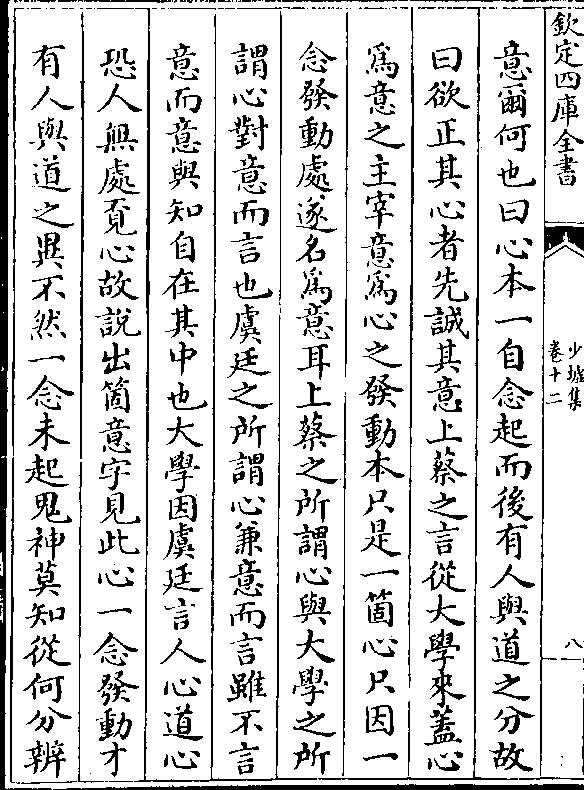 欽定四庫全書
少墟集
卷十二
八
意爾何也曰心本一自念起而後有人與道之分故
曰欲正其心者先誠其意上蔡之言從大學來蓋心
爲意之主宰意爲心之發動本只是一箇心只因一
念發動處遂名爲意耳上蔡之所謂心與大學之所
謂心對意而言也虞廷之所謂心兼意而言雖不言
意而意與知自在其中也大學因虞廷言人心道心
恐人無處覓心故說出箇意字見此心一念發動才
有人與道之異不然一念未起鬼神莫知從何分辨